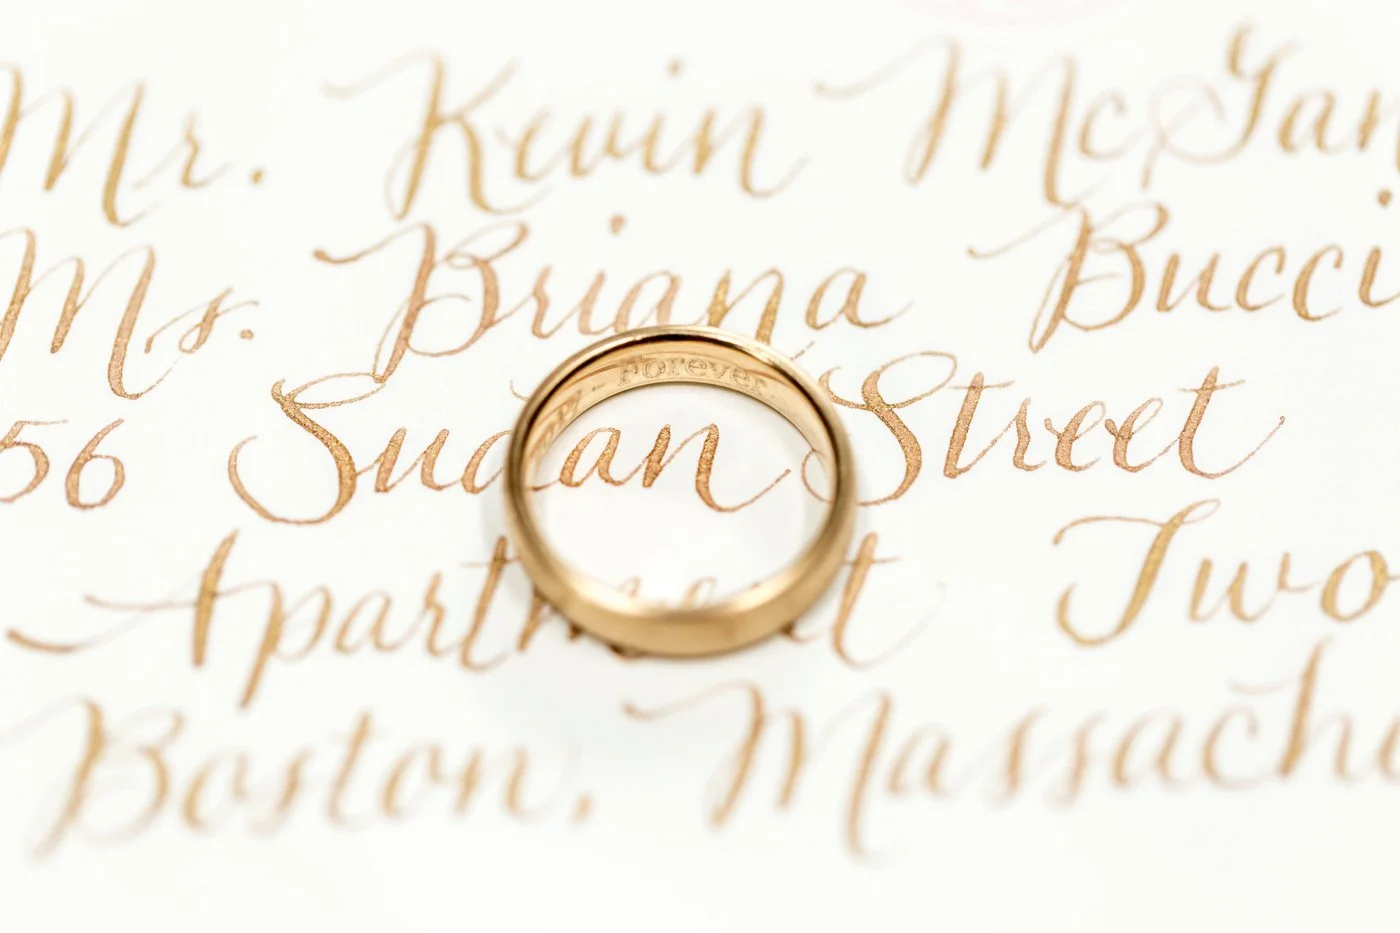 Mr. Kevin McGan
Ms. Briana Bucci
56 Sudan Street
Apartment Two
Boston, Massachu
- Forever